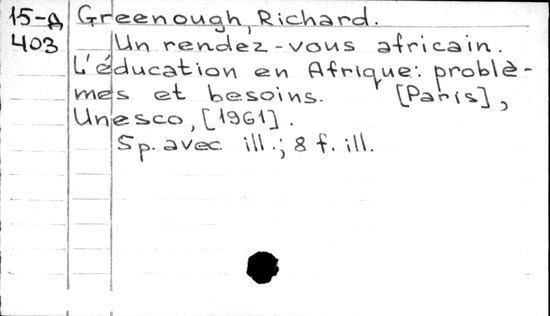 15-Д Greenough, Richard.
403 Un rendez-vous africain.
L'éducation en Afrique: problè-
mes et besoins. [Paris],
Unesco, [1961].
5 p. avec ill.; 8 f. ill.